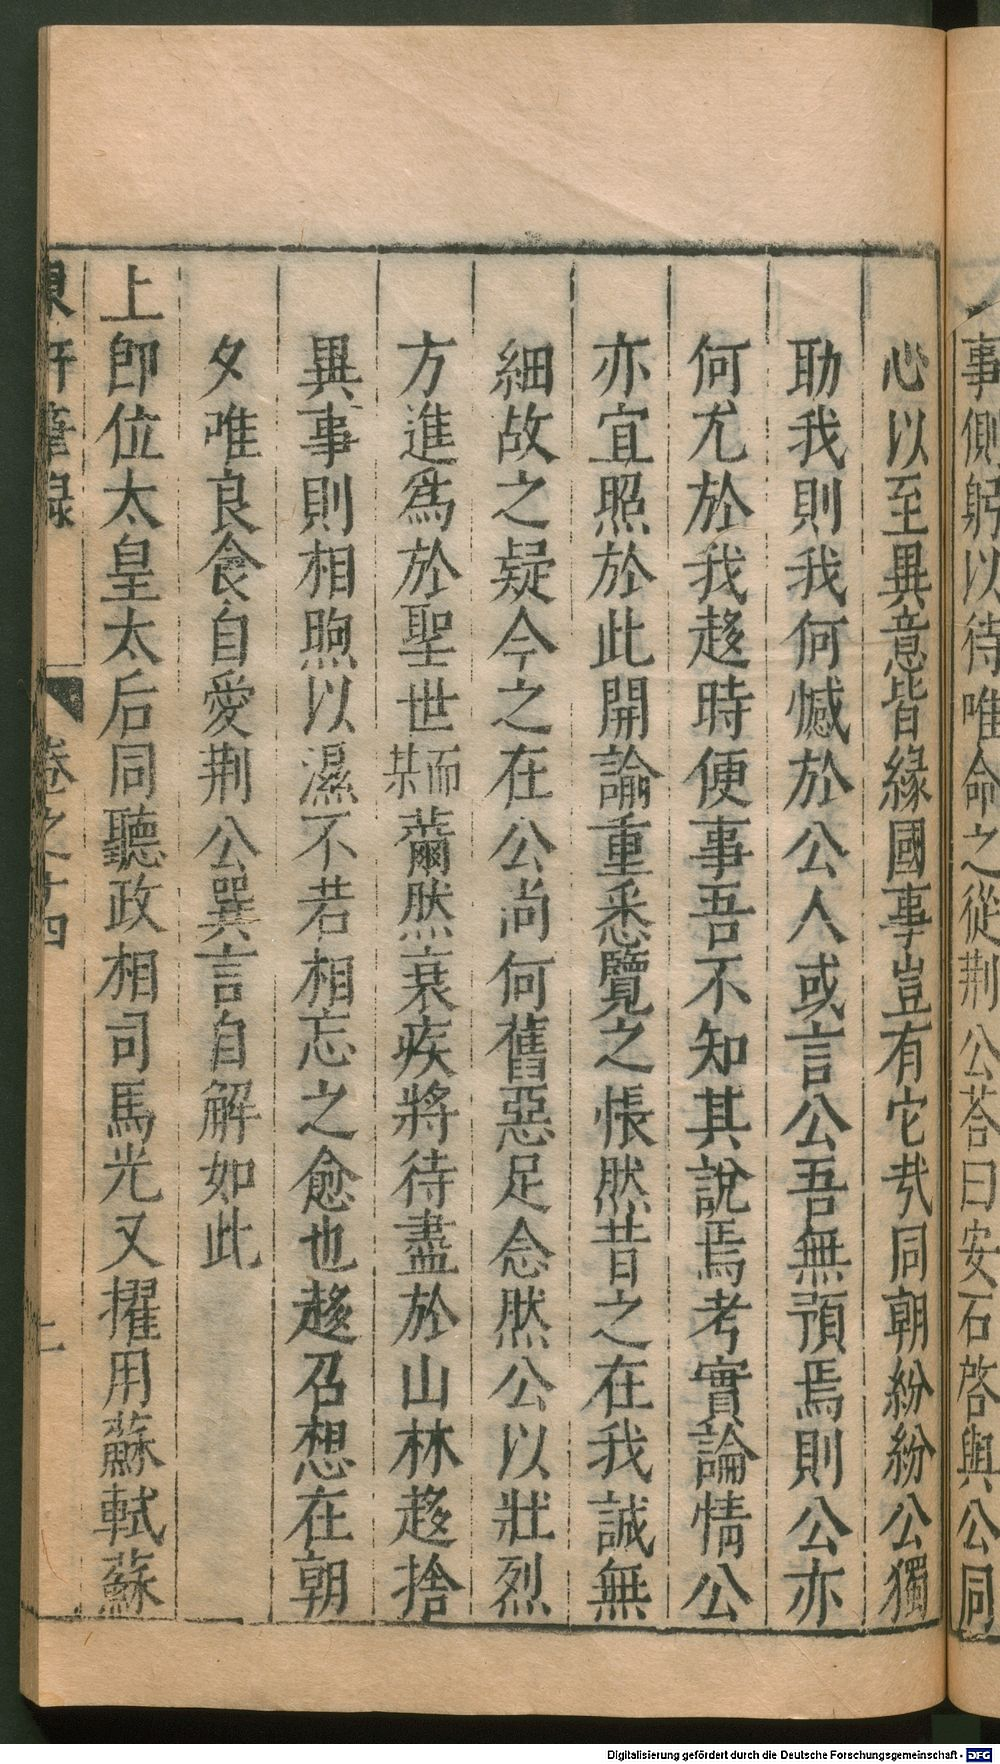 事側躬以待唯命之從荆公荅曰安石啓與公同
心以至異意皆緣國事豈有它㢤同朝紛紛公獨
助我則我何憾於公人或言公吾無預焉則公亦
何尤於我趍時便事吾不知其說焉考實論情公
亦宜照於此開諭重悉覽之悵然昔之在我誠無
細故之疑今之在公尚何舊惡足念然公以壯烈
方進爲於聖世而某薾然衰疾將待盡於山林趍捨
異事則相煦以濕不若相忘之愈也趍召想在朝
夕唯良食自愛荆公巽言自解如此
上即位太皇太后同聽政相司馬光又擢用蘇軾蘇
東軒筆錄 卷之十四
Digitalisierung gefördert durch die Deutsche Forschungsgemeinschaft - DFG